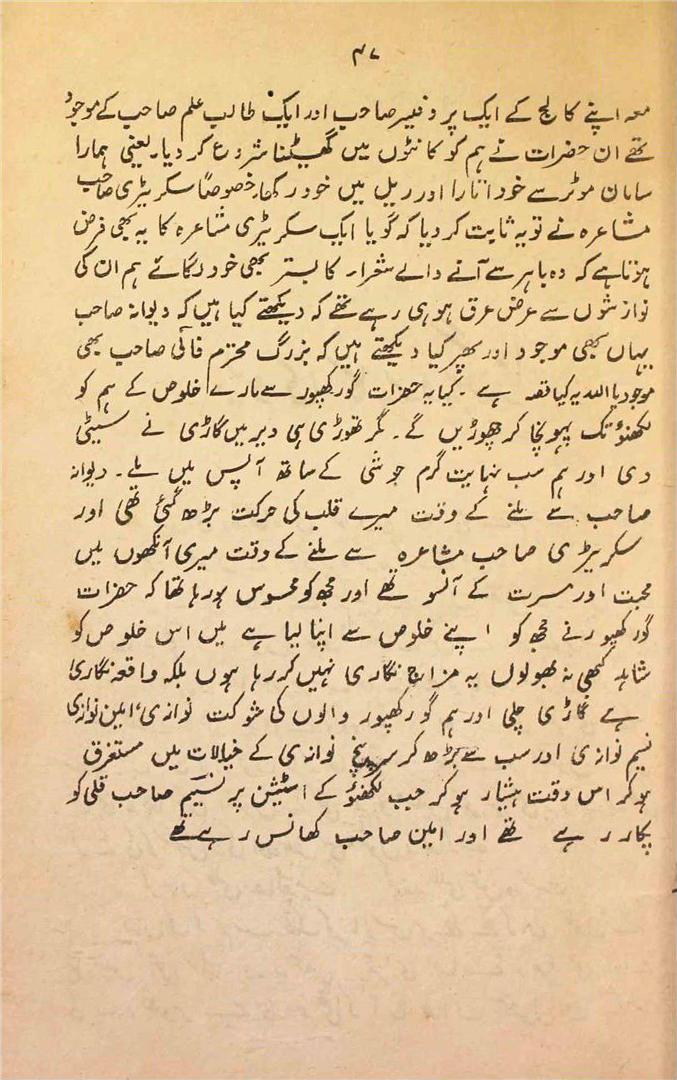 ۴۷
معہ اپنے کالج کے ایک پروفیسر صاحب اور ایک طالب علم صاحب کے موجود
تھے ان حضرات نے ہم کو کانٹوں میں گھیٹنا شروع کر دیا۔ یعنی ہمارا
سامان موٹر سے خود اتارا اور ریل میں خود رکھا۔ خصوصاً سکریٹری صاحب
مشاعرہ نے تو یہ ثابت کر دیا کہ گویا ایک سکریٹری مشاعرہ کا یہ بھی فرض
ہوتا ہے کہ وہ باہر سے آنے والے شعراء کا بستر بھی خود لگائے ہم ان کی
نوازشوں سے عرض عرق ہو ہی رہے تھے کہ دیکھتے کیا ہیں کہ دیوانہ صاحب
یہاں بھی موجود اور پھر کیا دیکھتے ہیں کہ بزرگ محترم فانی صاحب بھی
موجود یا اللہ یہ کیا قصہ ہے ۔ کیا یہ حضرات گورکھپور سے مارے خلوص کے ہم کو
لکھنؤ تک پہونچا کر چھوڑیں گے۔ مگر تھوڑی ہی دیر میں گاڑی نے سیٹی
دی اور ہم سب نہایت گرم جوشی کے ساتھ آپس میں ملے۔ دیوانہ
صاحب سے ملنے کے وقت میرے قلب کی حرکت بڑھ گئی تھی اور
سکریٹری صاحب مشاعرہ سے ملنے کے وقت میری آنکھوں میں
محبت اور مسرت کے آنسو تھے اور مجھ کو محسوس ہو رہا تھا کہ حضرات
گورکھپور نے مجھ کو اپنے خلوص سے اپنا لیا ہے میں اس خلوص کو
شاید کبھی نہ بھولوں یہ مزاح نگاری نہیں کر رہا ہوں بلکہ واقعہ نگاری
ہے گاڑی چلی اور ہم گورکھپور والوں کی شوکت نوازی، امین نوازی
نسیم نوازی اور سب سے بڑھ کر سرپنچ نوازی کے خیالات میں مستغرق
ہو کر اس وقت ہشیار ہو کر جب لکھنؤ کے اسٹیشن پر نسیم صاحب قلی کو
پکار رہے تھے اور امین صاحب کھانس رہے تھے